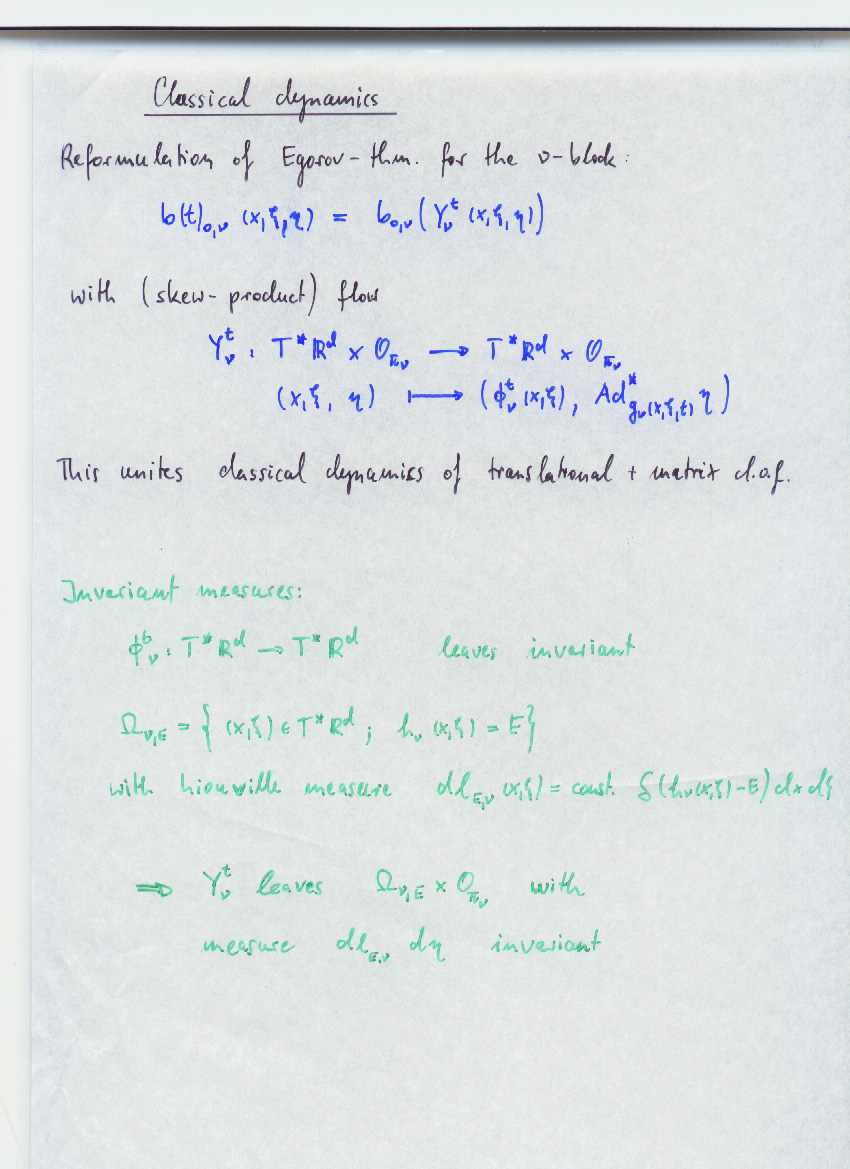 Classical dynamics
Reformulation of Egorov-thm. for the ν-block:
b(t)₀,ν (x,ξ,η) = b₀,ν (Y_ν^t (x,ξ,η))
with (skew-product) flow
Y_ν^t : T*ℝ^d × O_{π_ν} → T*ℝ^d × O_{π_ν}
(x,ξ, η) ↦ (ϕ_ν^t (x,ξ), Ad*_{g_ν(x,ξ,t)} η)
This unites classical dynamics of translational + matrix d.o.f.
Invariant measures:
ϕ_ν^t : T*ℝ^d → T*ℝ^d leaves invariant
Ω_{ν,E} = { (x,ξ) ∈ T*ℝ^d ; h_ν (x,ξ) = E }
with Liouville measure dl_{E,ν} (x,ξ) = const. δ(h_ν(x,ξ)-E) dx dξ
⇒ Y_ν^t leaves Ω_{ν,E} × O_{π_ν} with
measure dl_{E,ν} dη invariant